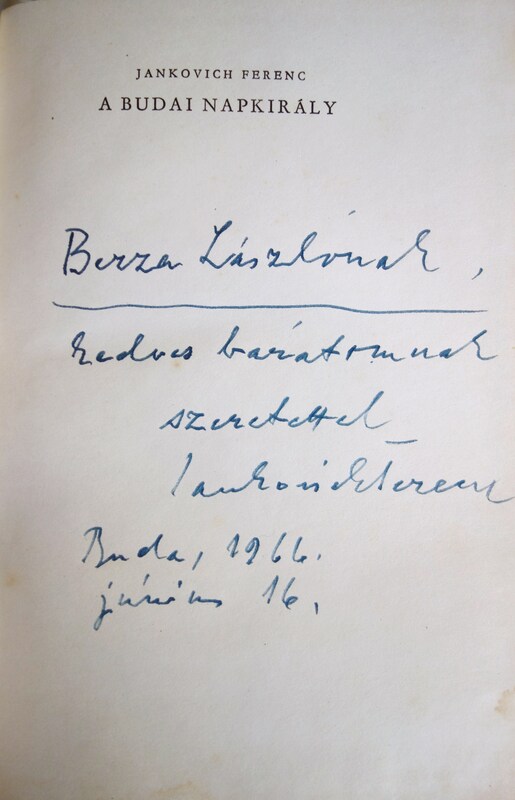 JANKOVICH FERENC
A BUDAI NAPKIRÁLY
Berza Lászlónak,
kedves barátomnak
szeretettel
Jankovich Ferenc
Buda, 1966.
június 16.